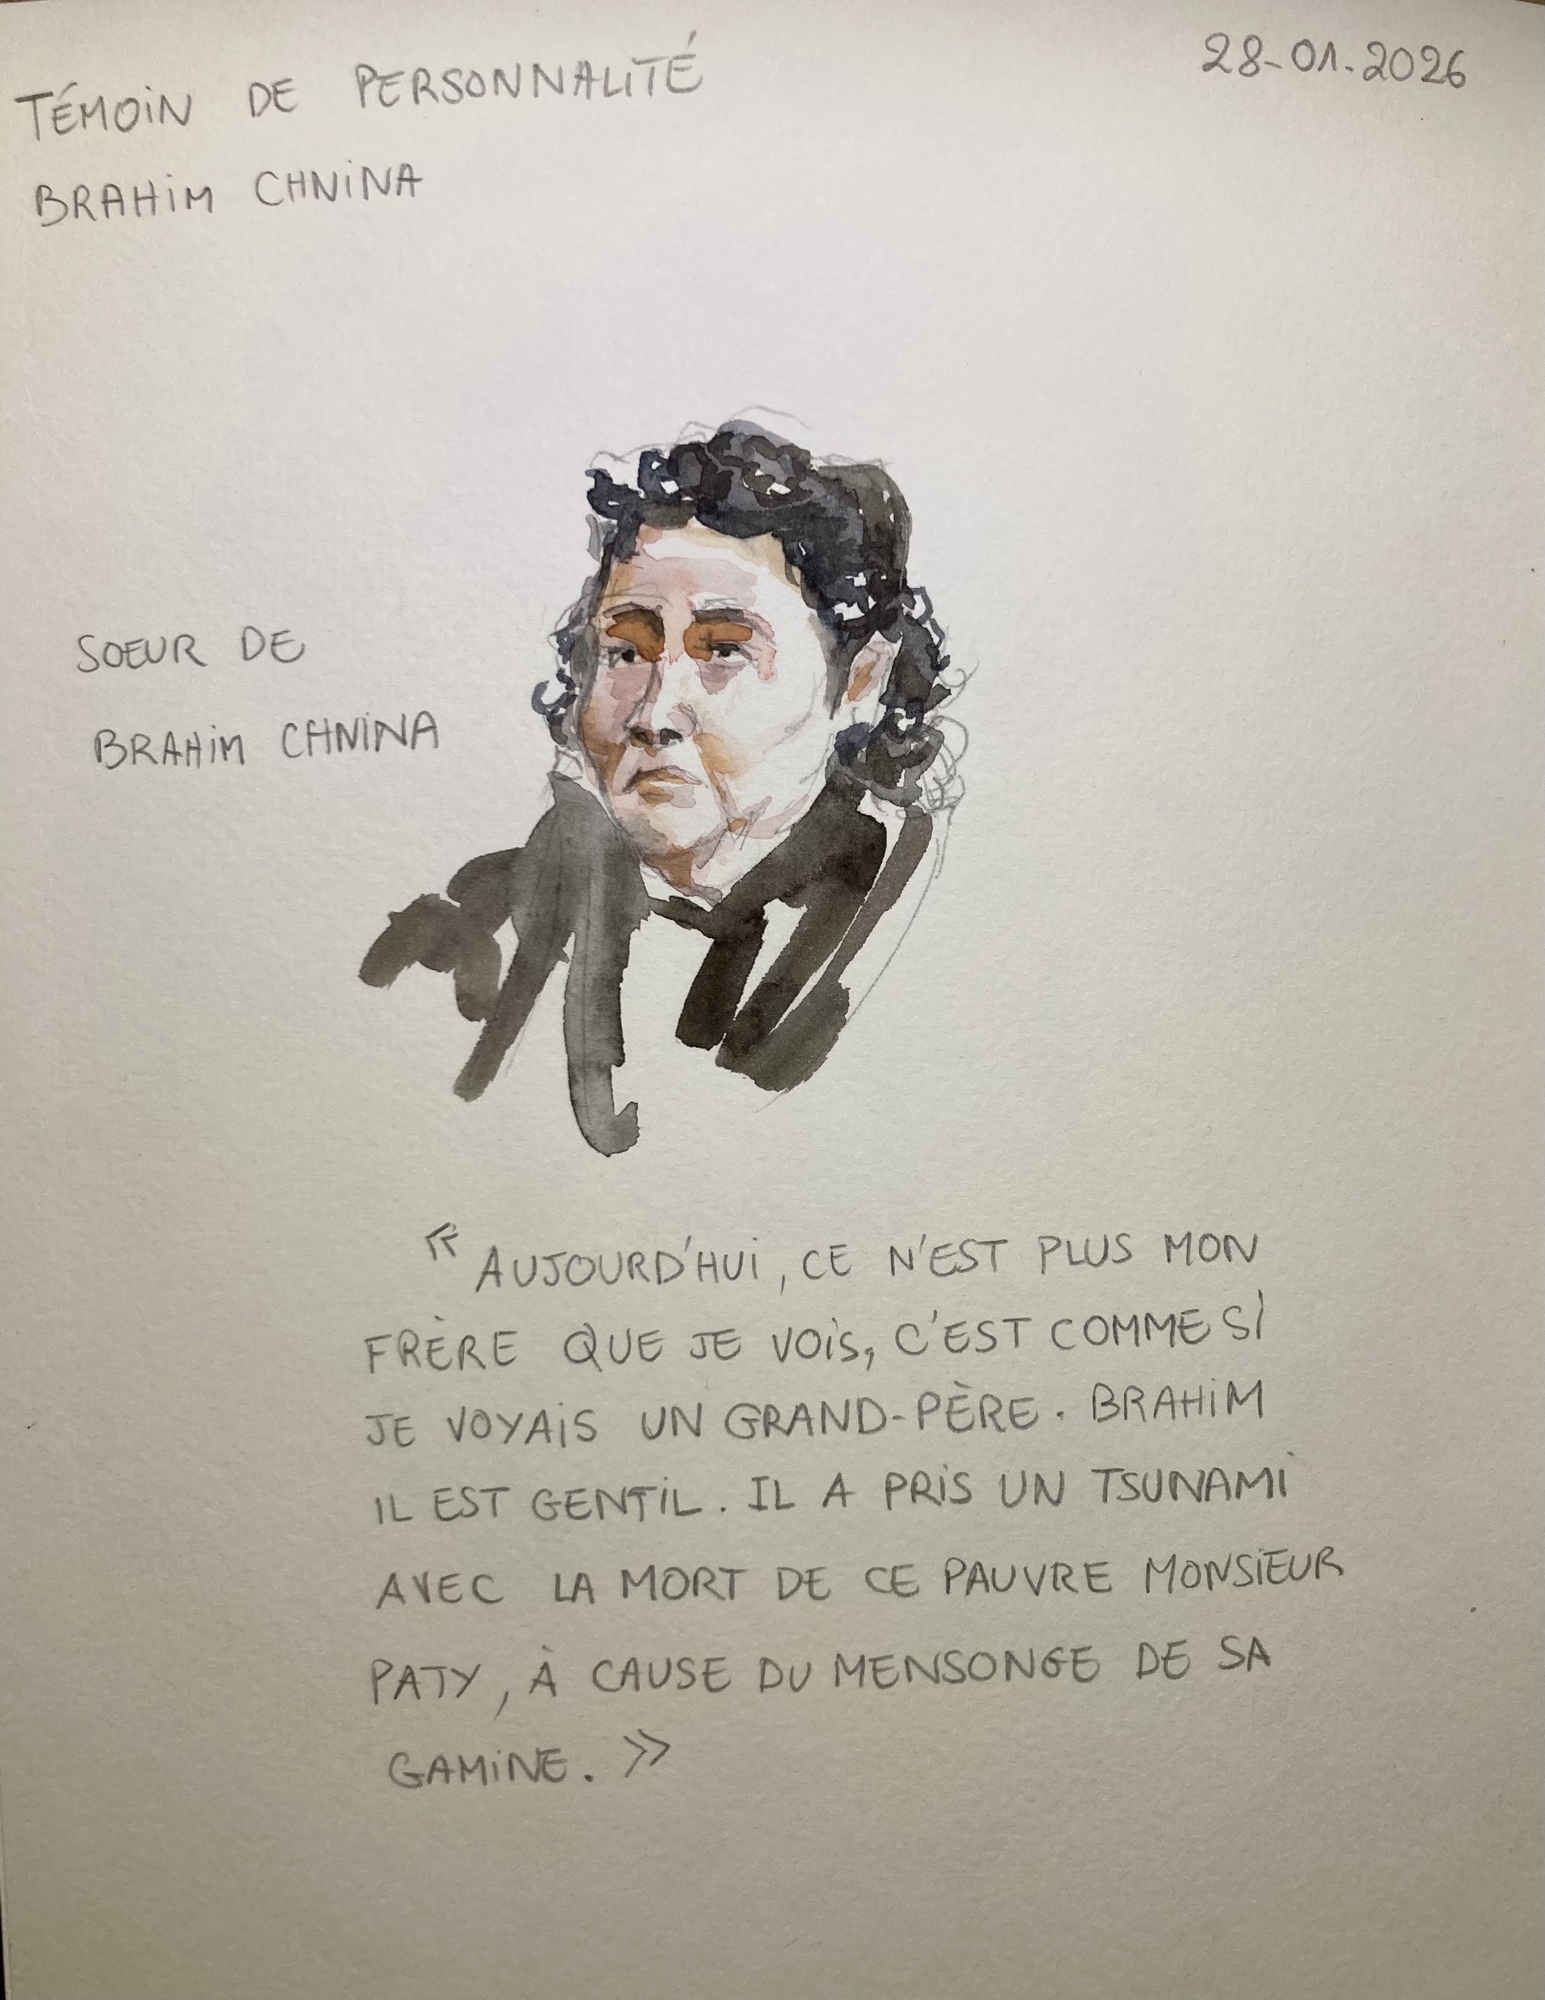 TÉMOIN DE PERSONNALITÉ
28-01-2026
BRAHIM CHNINA
SOEUR DE
BRAHIM CHNINA
« AUJOURD'HUI, CE N'EST PLUS MON
FRÈRE QUE JE VOIS, C'EST COMME SI
JE VOYAIS UN GRAND-PÈRE. BRAHIM
IL EST GENTIL. IL A PRIS UN TSUNAMI
AVEC LA MORT DE CE PAUVRE MONSIEUR
PATY, À CAUSE DU MENSONGE DE SA
GAMINE. »